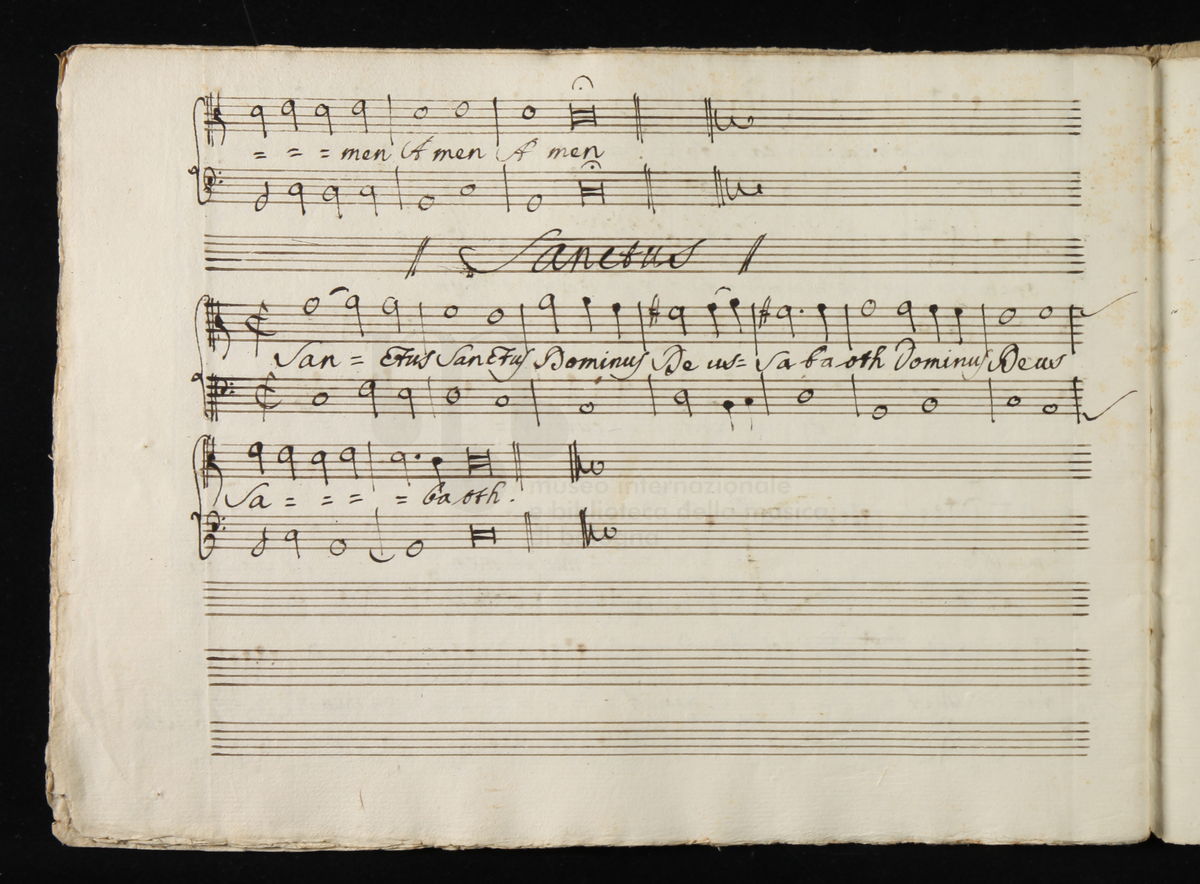 = = = men Amen A men
// Sanctus //
San = ctus Sanctus Dominus De us = Sa ba oth Dominus Deus
Sa = = = = ba oth.
museo internazionale
e biblioteca della musica
di bologna